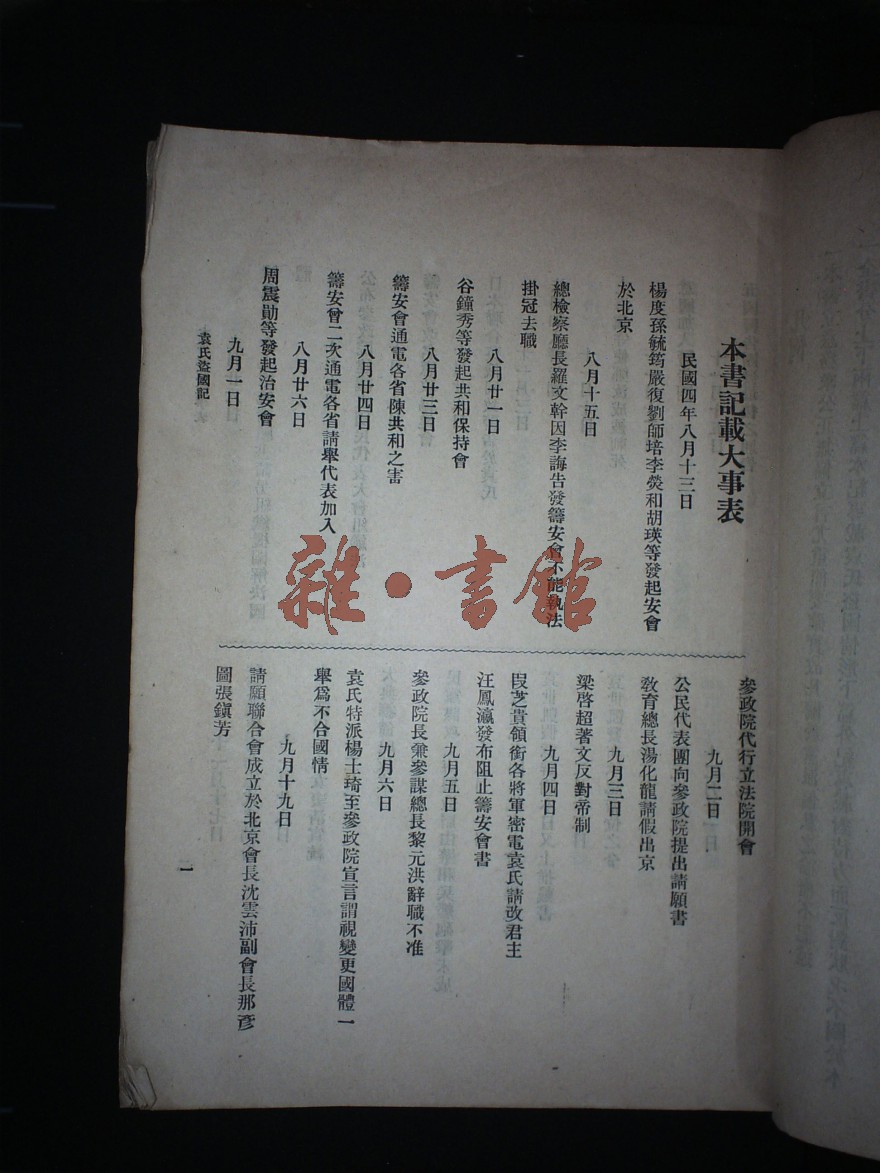 本書記載大事表
民國四年八月十三日
楊度孫毓筠嚴復劉師培李燮和胡瑛等發起安會
於北京
八月十五日
總檢察廳長羅文幹因李誨告發籌安會不能執法
掛冠去職
八月廿一日
谷鐘秀等發起共和保持會
八月廿三日
籌安會通電各省陳共和之害
八月廿四日
籌安曾二次通電各省請舉代表加入
八月廿六日
周震勛等發起治安會
九月一日
參政院代行立法院開會
九月二日
公民代表團向參政院提出請願書
敎育總長湯化龍請假出京
九月三日
梁啓超著文反對帝制
九月四日
段芝貴領銜各將軍密電袁氏請改君主
汪鳳瀛發布阻止籌安會書
九月五日
參政院長兼參謀總長黎元洪辭職不准
九月六日
袁氏特派楊士琦至參政院宣言謂視變更國體一
舉爲不合國情
九月十九日
請願聯合會成立於北京會長沈雲沛副會長那彥
圖張鎭芳
袁氏盜國記
一
雜·書館